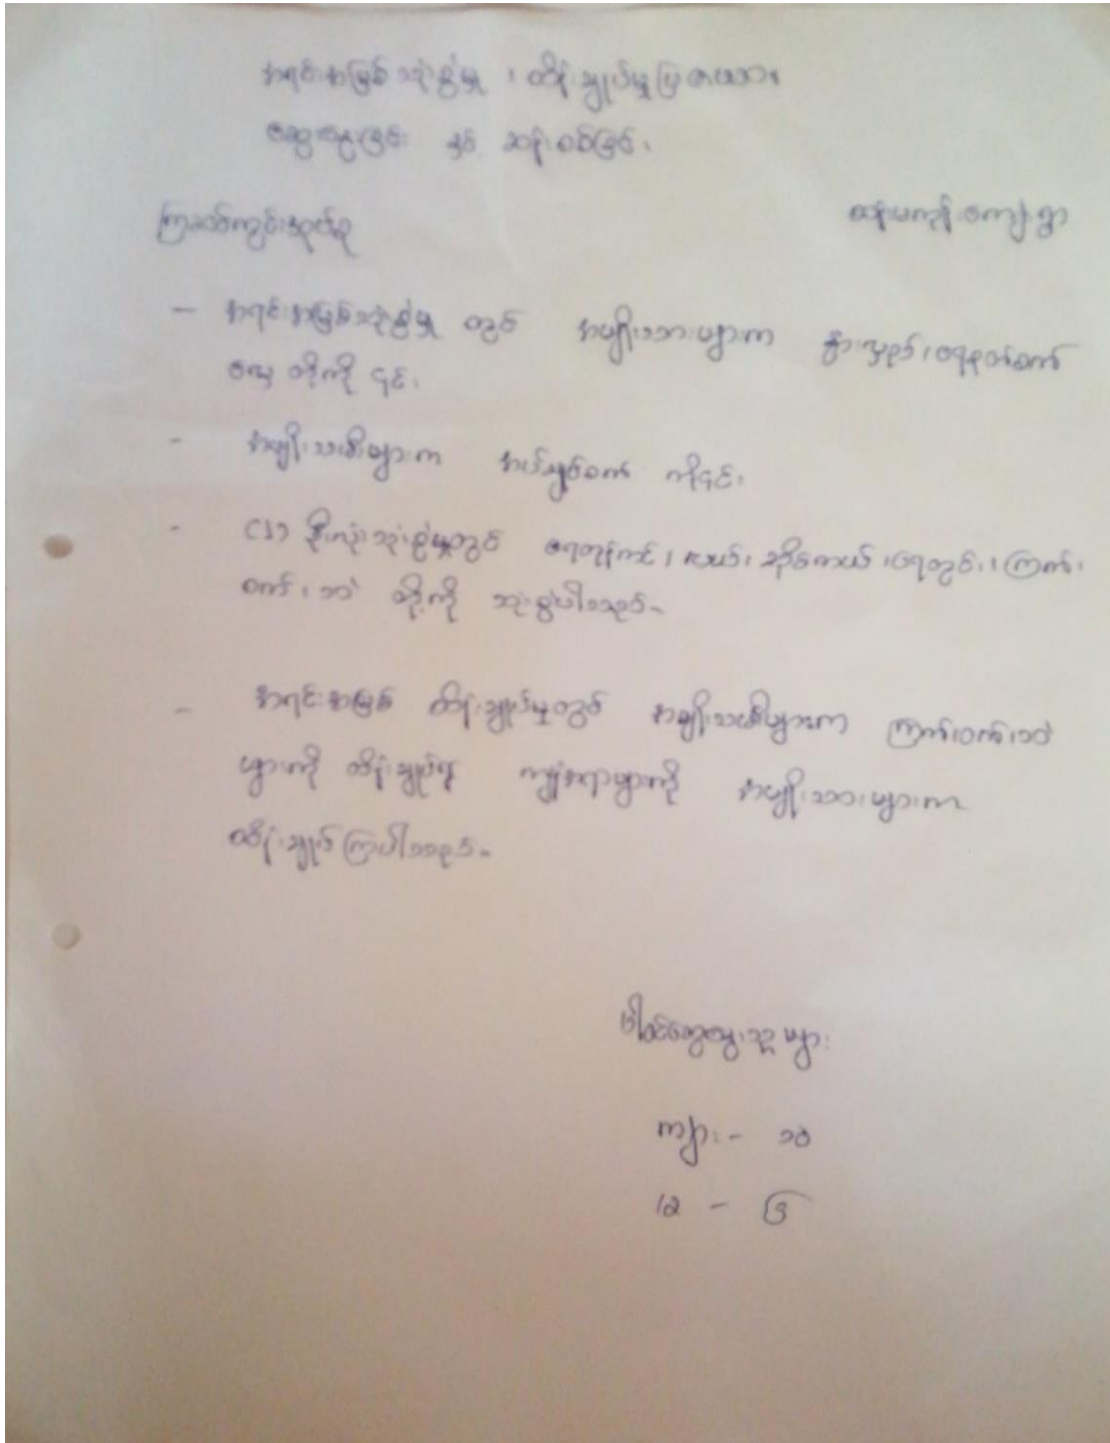 အရင်းအမြစ်သုံးစွဲမှု ၊ ထိန်းချုပ်မှုပြဇယား
ဆွေးနွေးခြင်း နှင့် ဆန်းစစ်ခြင်း
ကြခတ်ကွင်းအုပ်စု ထန်းမကုန်းကျေးရွာ
– အရင်းအမြစ်သုံးစွဲမှု တွင် အမျိုးသားများက နွားလှည်း၊ ရေစုပ်စက်
လှေ တို့ကို ၎င်း၊
- အမျိုးသမီးများက အပ်ချုပ်စက် ကို၎င်း၊
- ဦးလုံးသုံးစွဲမှုတွင် ရေတွန်ကင်၊ လယ်၊ ဆိုင်ကယ်၊ ရေတွင်း၊ ကြက်၊
ဝက်၊ ဘဲ တို့ကို သုံးစွဲပါသည်။
– အရင်းအမြစ် ထိန်းချုပ်မှုတွင် အမျိုးသမီးများက ကြက်၊ ဝက်၊ ဘဲ
များကို ထိန်းချုပ်၍ ကျွဲနွားများကို အမျိုးသားများက
ထိန်းချုပ်ကြပါသည်။
ပါဝင်ဆွေးနွေးသူများ
ကျား – ၁၀
မ – ၆